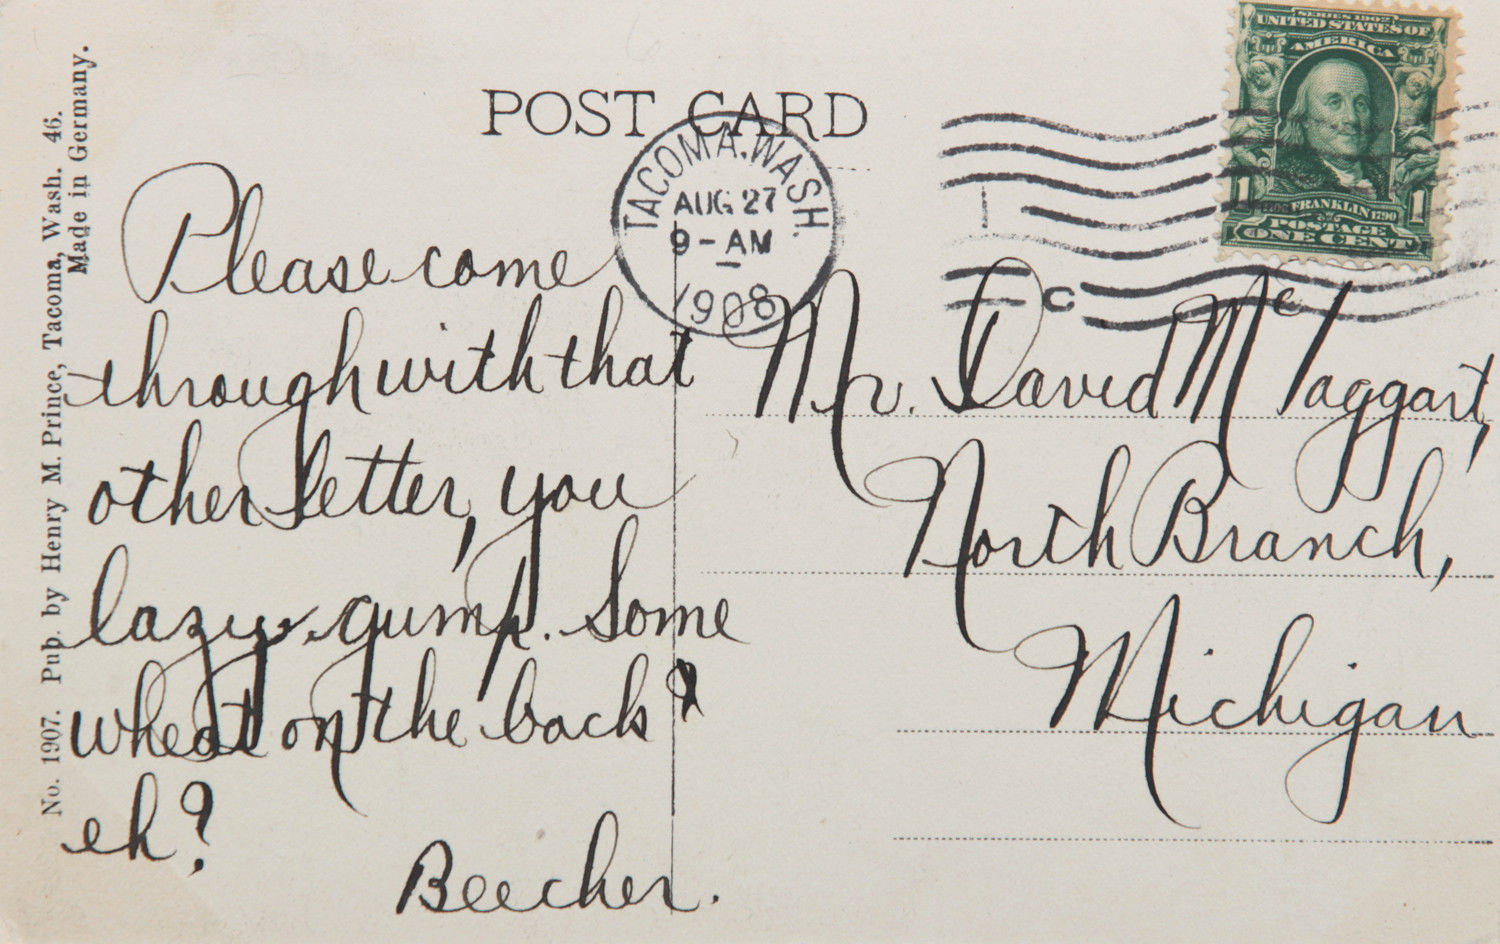 No. 1907. Pub. by Henry M. Prince, Tacoma, Wash. 46.
Made in Germany.
POST CARD
TACOMA, WASH.
AUG 27
9-AM
1908
C
SERIES 1902
UNITED STATES OF
AMERICA
1 1
FRANKLIN 1790
POSTAGE
ONE CENT
Please come
through with that
other letter, you
lazy gump. Some
wheat on the back?
eh?
Beecher.
Mr. David McTaggart,
North Branch,
Michigan